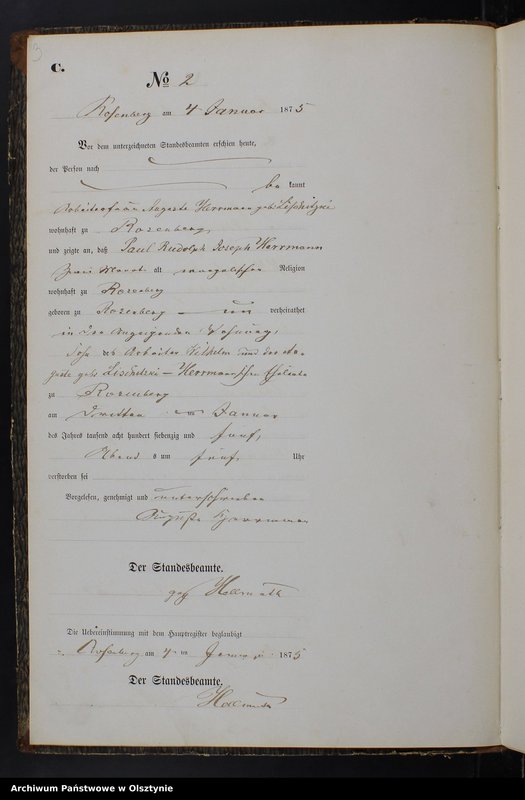 3
C.
No 2
Rosenberg am 4 Januar 1875
Vor dem unterzeichneten Standesbeamten erschien heute,
der Person nach
bekannt
Arbeiterfrau Auguste Herrmann geb.
wohnhaft zu Rosenberg,
und zeigte an, daß Paul Rudolph Joseph Herrmann
Zwei Monat alt evangelischer Religion
wohnhaft zu Rosenberg
geboren zu Rosenberg un verheirathet
in der Wohnung,
Sohn des Arbeiter Wilhelm und der Au-
guste geb. Herrmannschen Eheleute
zu Rosenberg
am Dritten Januar
des Jahres tausend acht hundert siebenzig und fünf,
Abends um fünf Uhr
verstorben sei
Vorgelesen, genehmigt und unterschrieben
Auguste Herrmann
Der Standesbeamte.
gez Hellmuth
Die Uebereinstimmung mit dem Hauptregister beglaubigt
Rosenberg am 4 ten Januar 1875
Der Standesbeamte.
Hellmuth
Archiwum Państwowe w Olsztynie